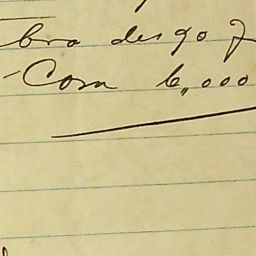 bro des 90 J
Com 6,,000